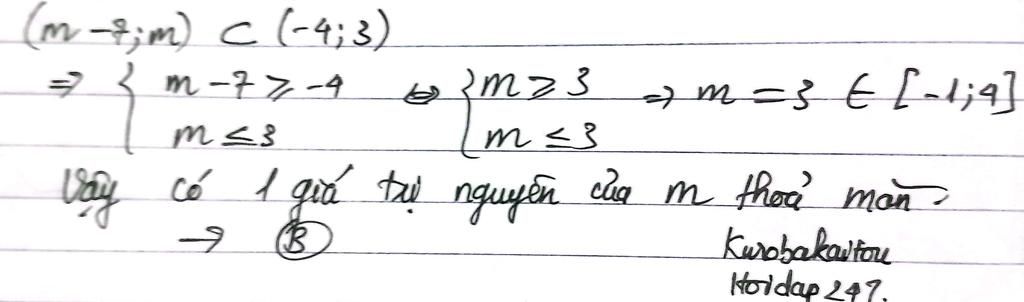 (m-7;m) ⊂ (-4;3)
⇒ { m-7 ≥ -4 ⇔ { m ≥ 3 ⇒ m = 3 ∈ [-1;4]
m ≤ 3 m ≤ 3
Vậy có 1 giá trị nguyên của m thoả mãn.
→ B
Kurobakaitou
Hoidap247.